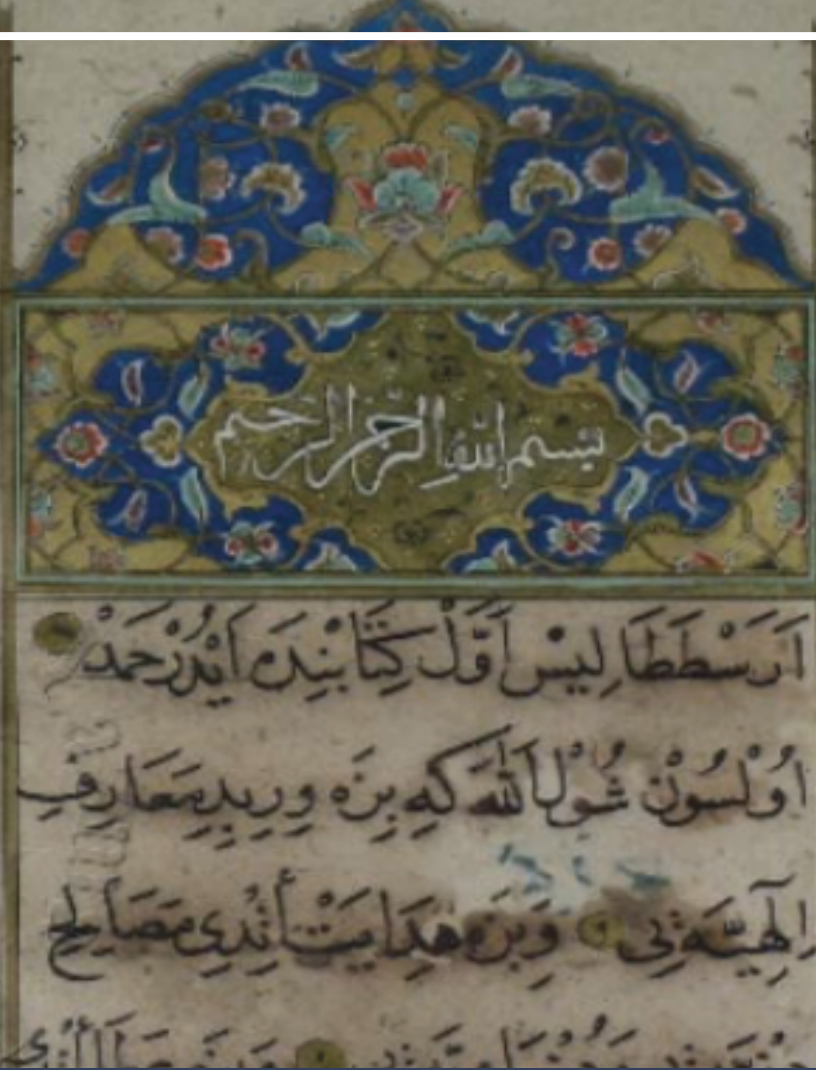 بسم الله الرحمن الرحيم
اَرَسْطَطَالِيسْ اَوَّلْ كِتَابْنِدَه اَيْدُرْحَمْدْ
اُوْلْسُوْنْ شُوْلْ اَللّٰهَ كَهِ بِزَه وِرِيدِ مَعَارِفِ
اِلٰهِيَّه نِى وَبِزَه هِدَايَتْ أَتْدِى مَصَالِحِ